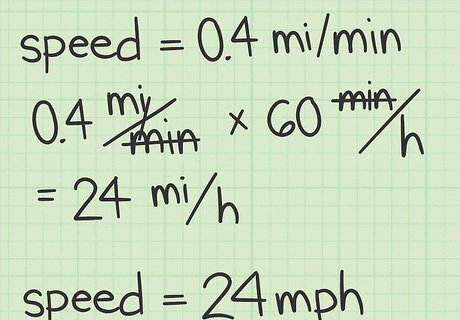 speed = 0.4 mi/min
0.4 mi/min × 60 min/h
= 24 mi/h
speed = 24 mph